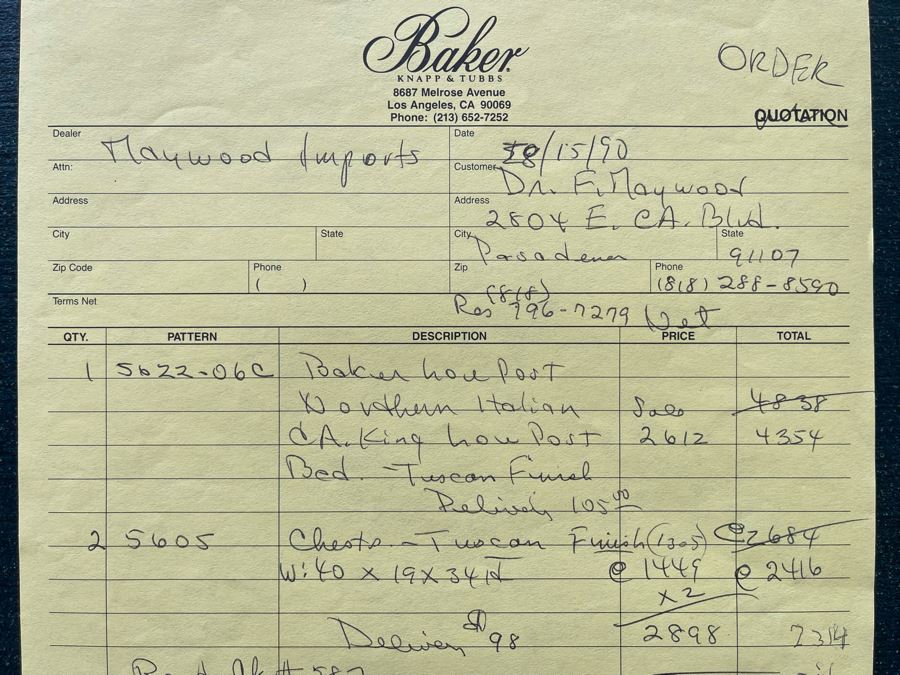 Baker
KNAPP & TUBBS
8687 Melrose Avenue
Los Angeles, CA 90069
Phone: (213) 652-7252
ORDER
QUOTATION
Dealer Maywood Imports
Date 8/15/90
Attn:
Customer Dr. F. Maywood
Address
Address 2804 E. CA. Blvd.
City State
City Pasadena State 91107
Zip Code Phone ( )
Zip Phone (818) 288-8590
Terms Net
(818)
Res 796-7279 Net
QTY. PATTERN DESCRIPTION PRICE TOTAL
1 5622-06C Baker Low Post
Northern Italian Sale 4838
CA. King Low Post 2612 4354
Bed. - Tuscan Finish
Delivery 105.00
2 5605 Chests - Tuscan Finish (1305) @ 2684
W: 40 X 19 X 34 H @ 1449 @ 2416
X 2
Deliver 98 2898